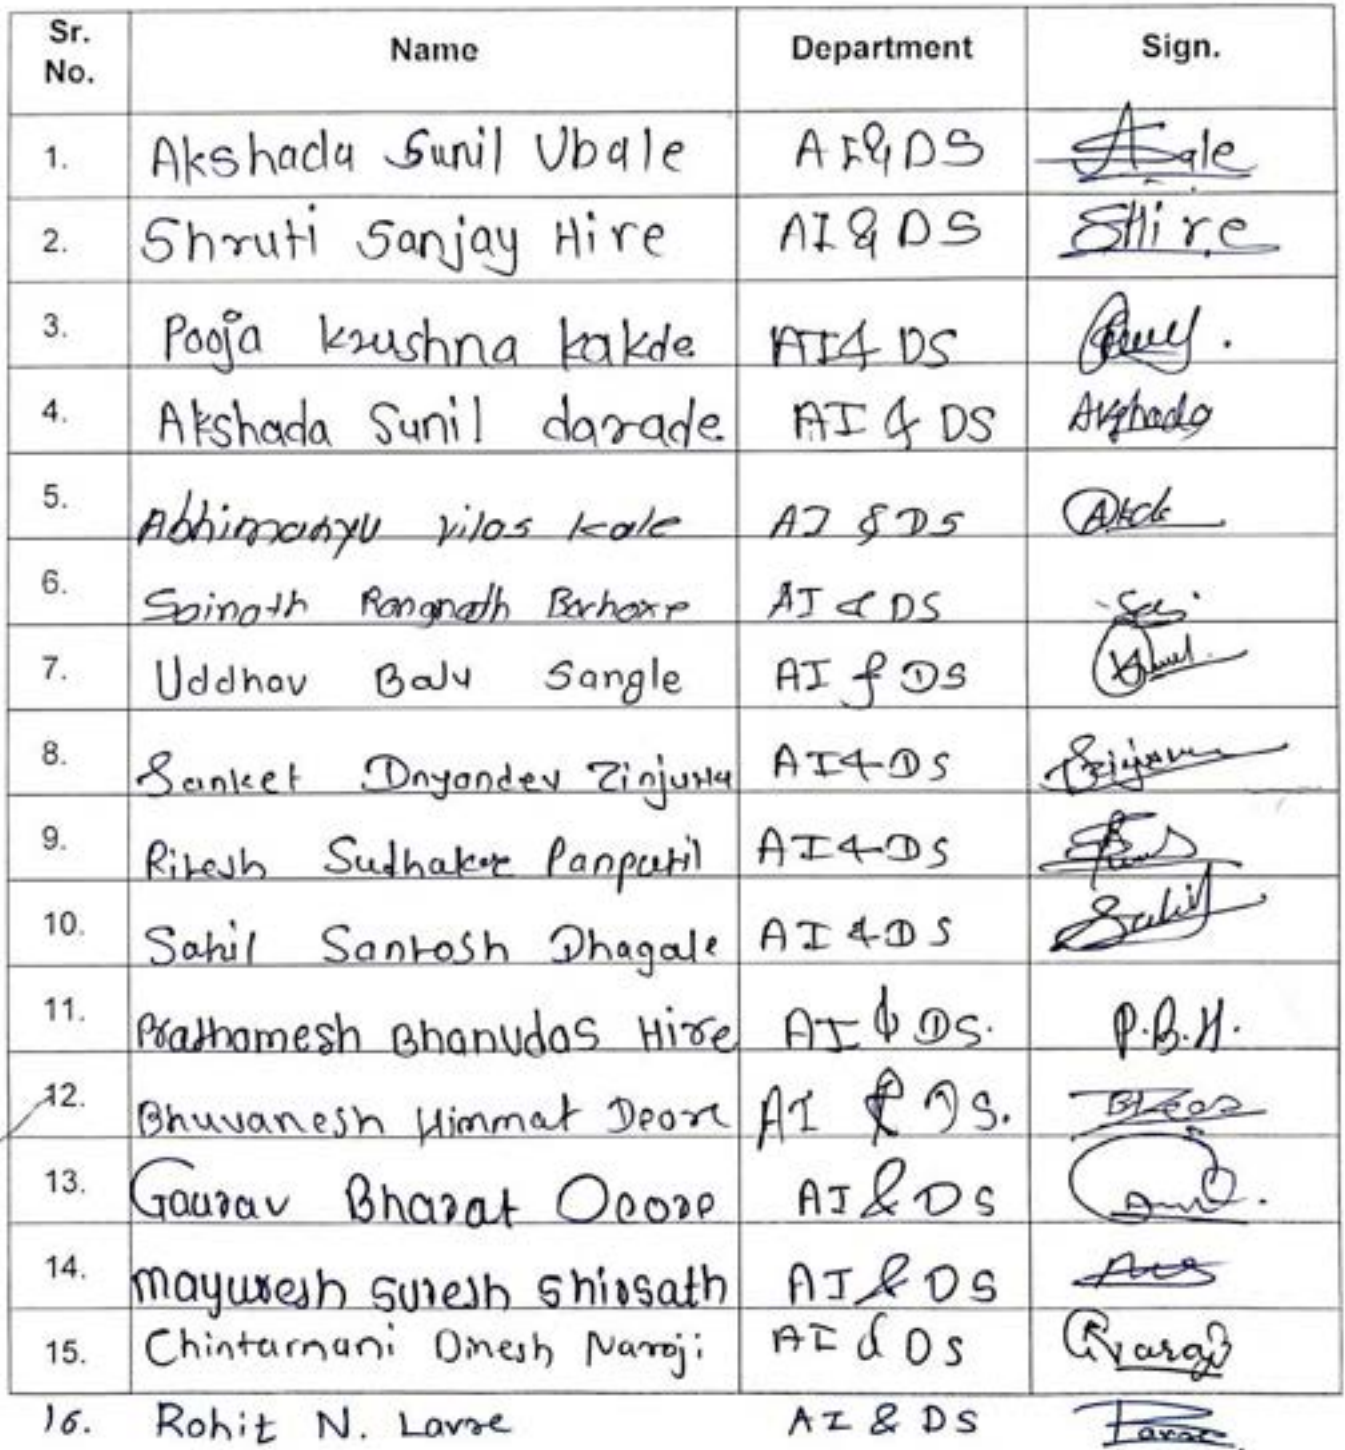 Sr. No. Name Department Sign.
1. Akshada Sunil Ubale AI & DS
2. Shruti Sanjay Hire AI & DS SHire
3. Pooja Krushna kakde AI & DS
4. Akshada Sunil darade AI & DS Akshada
5. Abhimanyu vilas kale AI & DS
6. Sainath Rangnath Barhate AI & DS Sai
7. Uddhav Balu Sangle AI & DS
8. Sanket Dnyandev Zinjurke AI & DS
9. Ritesh Sudhakar Panpatil AI & DS
10. Sahil Santosh Dhagale AI & DS Sahil
11. Prathamesh Bhanudas Hire AI & DS. P.B.H.
12. Bhuvanesh Himmat Deore AI & DS.
13. Gaurav Bharat Deore AI & DS
14. mayuresh suresh shirsath AI & DS
15. Chintamani Dinesh Naroji AI & DS
16. Rohit N. Larse AI & DS